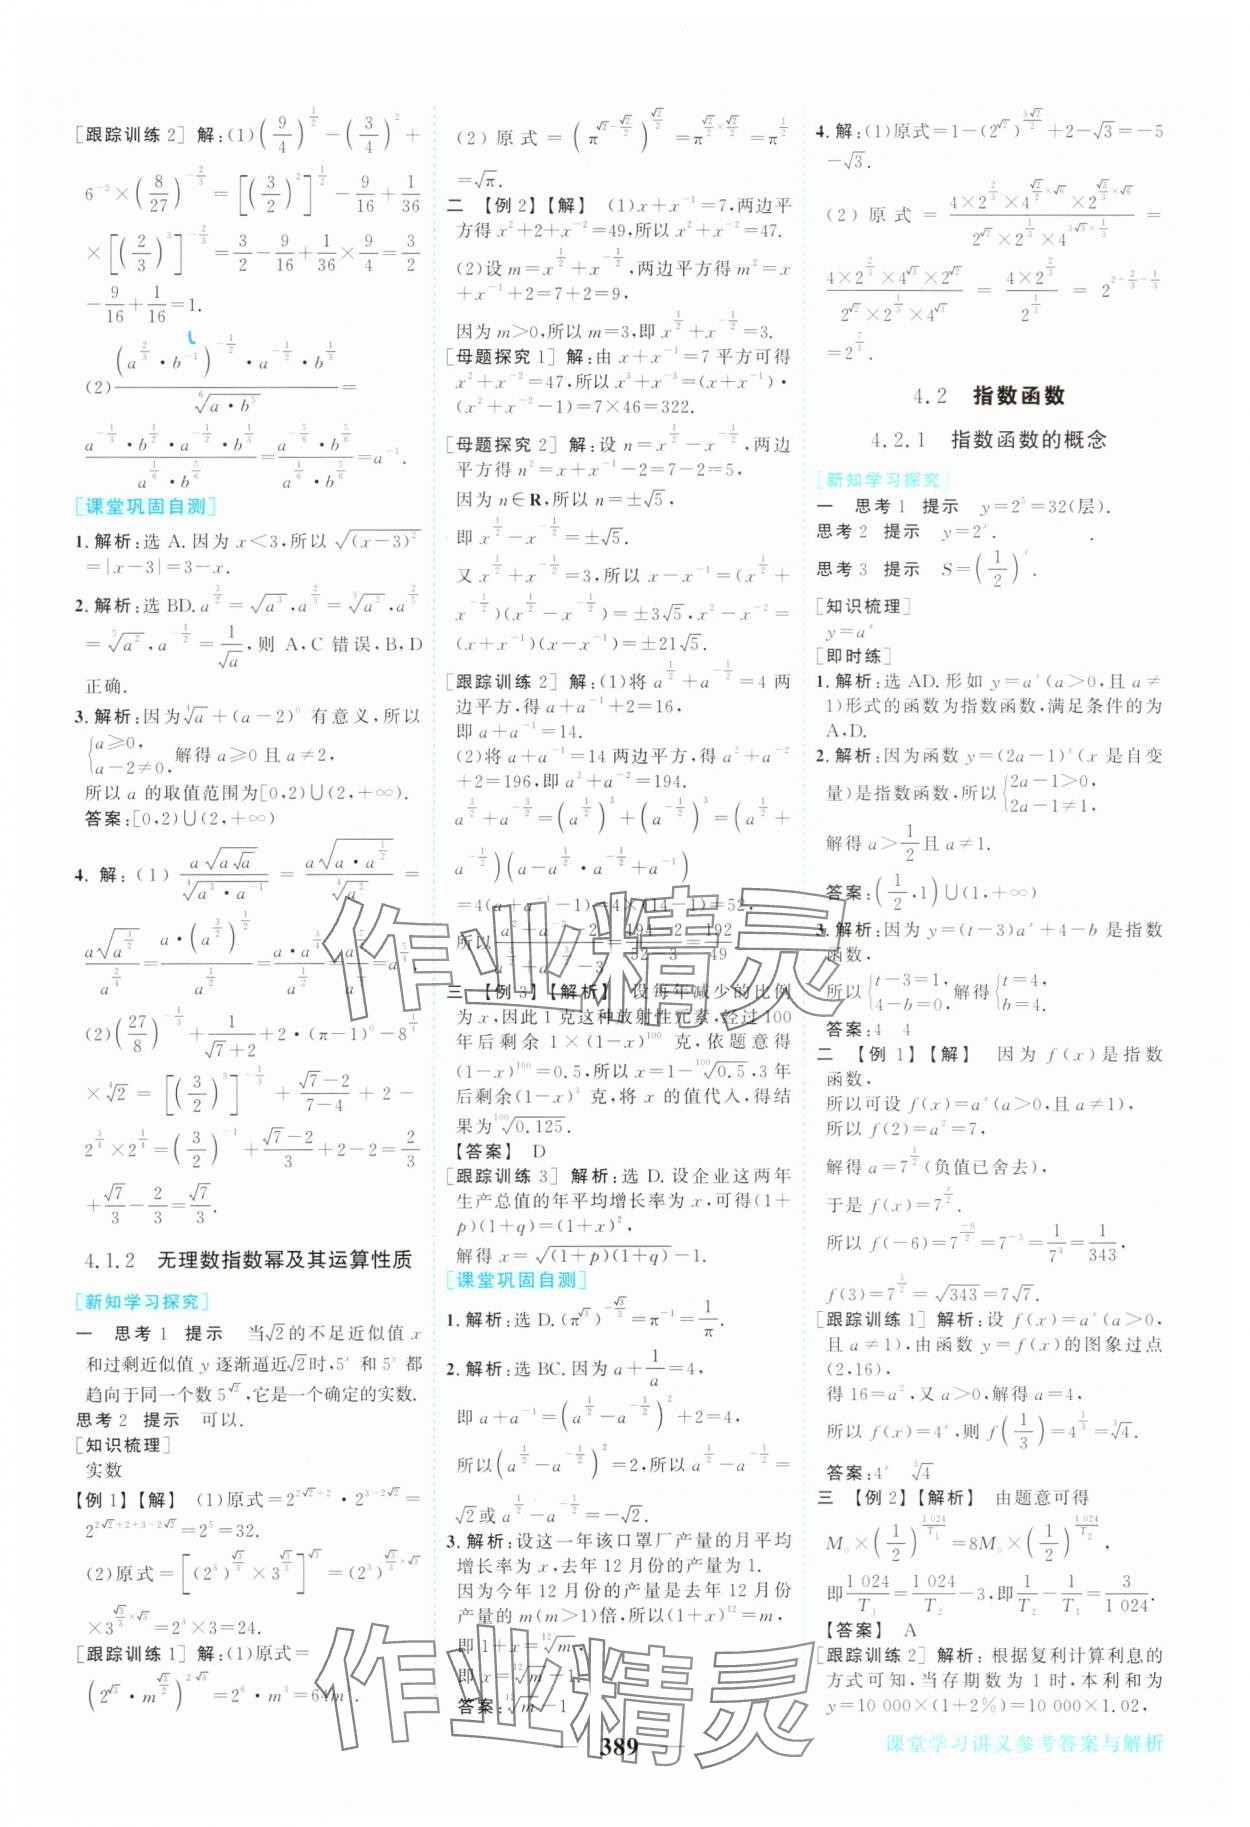 [跟踪训练2] 解:(1)(9/4)^{1/2}-(3/4)^2+
6^{-2}×(8/27)^{-2/3}=[(3/2)^2]^{1/2}-9/16+1/36
×[(2/3)^3]^{-2/3}=3/2-9/16+1/36×9/4=3/2
-9/16+1/16=1.
(2)(a^{2/3}·b^{-1})^{-1/2}·a^{-1/2}·b^{1/3}/\sqrt[6]{a·b^5}=
a^{-1/3}·b^{1/2}·a^{-1/2}·b^{1/3}/(a^{1/6}·b^{5/6})=a^{-5/6}·b^{5/6}/(a^{1/6}·b^{5/6})=a^{-1}.
[课堂巩固自测]
1.解析:选 A.因为 x<3,所以 √((x-3)^2)
=|x-3|=3-x.
2.解析:选 BD.a^{3/2}=√(a^3),a^{2/3}=\sqrt[3]{a^2},a^{2/5}
=\sqrt[5]{a^2},a^{-1/2}=1/√a,则 A,C 错误,B,D
正确.
3.解析:因为\sqrt[4]{a}+(a-2)^0 有意义,所以
{a≥0,
a-2≠0, 解得 a≥0 且 a≠2,
所以 a 的取值范围为[0,2)∪(2,+∞).
答案:[0,2)∪(2,+∞)
4.解:(1) a√(a√a)/\sqrt[4]{a^3·a^{-1}} = a√(a·a^{1/2})/\sqrt[4]{a^2} =
(2)(27/8)^{-1/3}+1/(√7+2)+2·(π-1)^0-8^{1/4}
×\sqrt[4]{2}=[(3/2)^3]^{-1/3}+(√7-2)/(7-4)+2-
2^{3/4}×2^{1/4}=(3/2)^{-1}+(√7-2)/3+2-2=2/3
+√7/3-2/3=√7/3.
4.1.2 无理数指数幂及其运算性质
[新知学习探究]
一 思考1 提示 当√2的不足近似值 x
和过剩近似值 y 逐渐逼近√2时,5^x 和 5^y 都
趋向于同一个数 5^{√2},它是一个确定的实数.
思考2 提示 可以.
[知识梳理]
实数
【例1】【解】 (1)原式=2^{2√2+2}·2^{3-2√2}=
2^{2√2+2+3-2√2}=2^5=32.
(2)原式=[(2^3)^{√3/3}×3^{√3/3}]^{√3}=(2^3)^{√3/3×√3}
×3^{√3/3×√3}=2^3×3=24.
[跟踪训练1] 解:(1)原式=
(2^{√3}·m^{√3/2})^{2√3}=2^6·m^3=64m^3.
(2)原式=(π^{√2-√2/2})^{√2/2}=π^{√2/2×√2/2}=π^{1/2}
=√π.
二 【例2】【解】 (1)x+x^{-1}=7,两边平
方得 x^2+2+x^{-2}=49,所以 x^2+x^{-2}=47.
(2)设 m=x^{1/2}+x^{-1/2},两边平方得 m^2=x
+x^{-1}+2=7+2=9,
因为 m>0,所以 m=3,即 x^{1/2}+x^{-1/2}=3.
[母题探究1] 解:由 x+x^{-1}=7 平方可得
x^2+x^{-2}=47,所以 x^3+x^{-3}=(x+x^{-1})·
(x^2+x^{-2}-1)=7×46=322.
[母题探究2] 解:设 n=x^{1/2}-x^{-1/2},两边
平方得 n^2=x+x^{-1}-2=7-2=5,
因为 n∈R,所以 n=±√5,
即 x^{1/2}-x^{-1/2}=±√5.
又 x^{1/2}+x^{-1/2}=3,所以 x-x^{-1}=(x^{1/2}+
x^{-1/2})(x^{1/2}-x^{-1/2})=±3√5,x^2-x^{-2}=
(x+x^{-1})(x-x^{-1})=±21√5.
[跟踪训练2] 解:(1)将 a^{1/2}+a^{-1/2}=4 两
边平方,得 a+a^{-1}+2=16,
即 a+a^{-1}=14.
(2)将 a+a^{-1}=14 两边平方,得 a^2+a^{-2}
+2=196,即 a^2+a^{-2}=194.
a^{3/2}+a^{-3/2}=(a^{1/2})^3+(a^{-1/2})^3=(a^{1/2}+
a^{-1/2})(a-a^{1/2}·a^{-1/2}+a^{-1})
=4(a+a^{-1}-1)=4×(14-1)=52,
所以 (a^2+a^{-2}-2)/(a^{3/2}+a^{-3/2}-3)=(194-2)/(52-3)=192/49.
三 【例3】【解析】 设每年减少的比例
为 x,因此 1 克这种放射性元素,经过 100
年后剩余 1×(1-x)^{100} 克,依题意得
(1-x)^{100}=0.5,所以 x=1-\sqrt[100]{0.5},3 年
后剩余(1-x)^3 克,将 x 的值代入,得结
果为\sqrt[100]{0.125}.
【答案】 D
[跟踪训练3] 解析:选 D.设企业这两年
生产总值的年平均增长率为 x,可得(1+
p)(1+q)=(1+x)^2,
解得 x=√((1+p)(1+q))-1.
[课堂巩固自测]
1.解析:选 D.(π^{√3})^{-√3/3}=π^{-1}=1/π.
2.解析:选 BC.因为 a+1/a=4,
即 a+a^{-1}=(a^{1/2}-a^{-1/2})^2+2=4,
所以(a^{1/2}-a^{-1/2})^2=2,所以 a^{1/2}-a^{-1/2}=
√2或 a^{1/2}-a^{-1/2}=-√2.
3.解析:设这一年该口罩厂产量的月平均
增长率为 x,去年 12 月份的产量为 1.
因为今年 12 月份的产量是去年 12 月份
产量的 m(m>1)倍,所以(1+x)^{12}=m,
即 1+x=\sqrt[12]{m},
即 x=\sqrt[12]{m}-1.
答案:\sqrt[12]{m}-1
4.解:(1)原式=1-(2^{√2})^{3√2/2}+2-√3=-5
-√3.
(2)原式=
=2^{7/3}.
4.2 指数函数
4.2.1 指数函数的概念
[新知学习探究]
一 思考1 提示 y=2^5=32(层).
思考2 提示 y=2^x.
思考3 提示 S=(1/2)^x.
[知识梳理]
y=a^x
[即时练]
1.解析:选 AD.形如 y=a^x(a>0,且 a≠
1)形式的函数为指数函数,满足条件的为
A,D.
2.解析:因为函数 y=(2a-1)^x(x 是自变
量)是指数函数,所以{2a-1>0,
2a-1≠1,
解得 a>1/2且 a≠1.
答案:(1/2,1)∪(1,+∞)
3.解析:因为 y=(t-3)a^x+4-b 是指数
函数,
所以{t-3=1,
4-b=0, 解得{t=4,
b=4.
答案:4 4
二 【例1】【解】 因为 f(x)是指数
函数,
所以可设 f(x)=a^x(a>0,且 a≠1),
所以 f(2)=a^2=7,
解得 a=7^{1/2}(负值已舍去),
于是 f(x)=7^{x/2}.
所以 f(-6)=7^{-6/2}=7^{-3}=1/7^3=1/343,
f(3)=7^{3/2}=√343=7√7.
[跟踪训练1] 解析:设 f(x)=a^x(a>0,
且 a≠1),由函数 y=f(x)的图象过点
(2,16),
得 16=a^2,又 a>0,解得 a=4,
所以 f(x)=4^x,则 f(1/3)=4^{1/3}=\sqrt[3]{4}.
答案:4^x \sqrt[3]{4}
三 【例2】【解析】 由题意可得
M_0×(1/2)^{1 024/T_1}=8M_0×(1/2)^{1 024/T_2},
即1 024/T_1=1 024/T_2-3,即1/T_2-1/T_1=3/1 024.
【答案】 A
[跟踪训练2] 解析:根据复利计算利息的
方式可知,当存期数为 1 时,本利和为
y=10 000×(1+2%)=10 000×1.02,
389
课堂学习讲义参考答案与解析
作业精灵
作业精灵